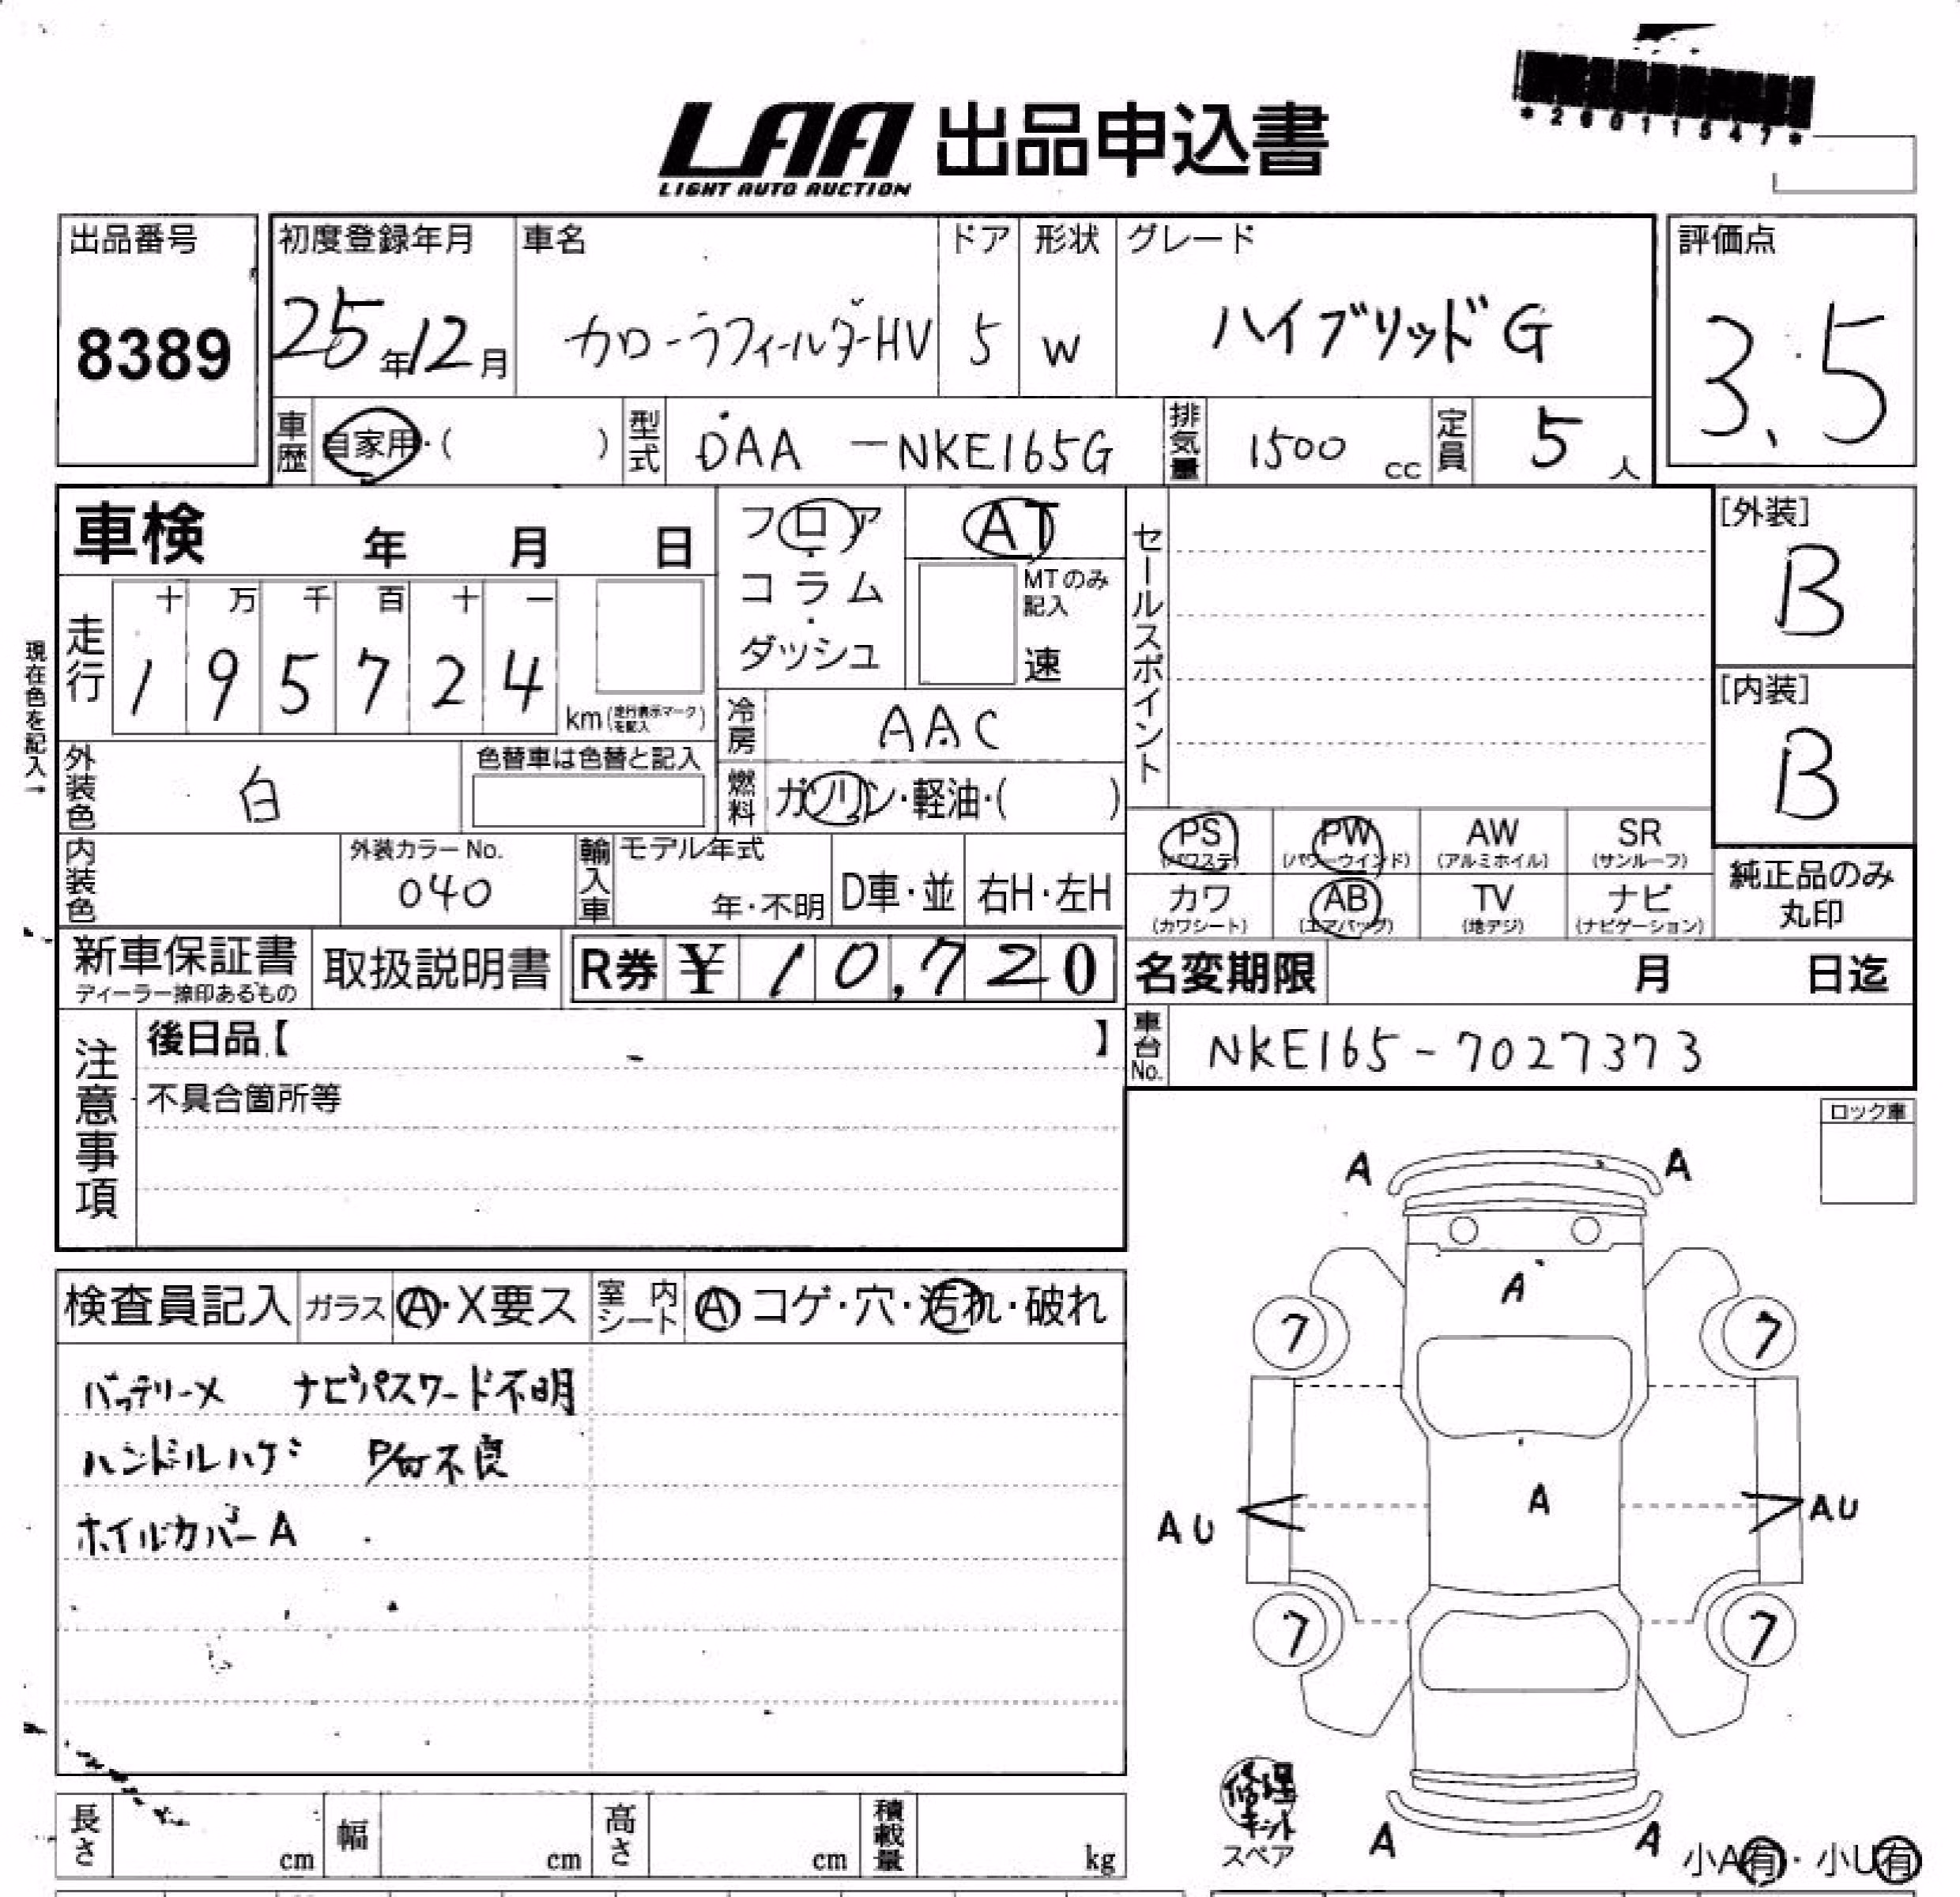 *26011547*
LAA 出品申込書
LIGHT AUTO AUCTION
出品番号
8389
初度登録年月
25年12月
車名
カローラフィールダーHV
ドア
5
形状
W
グレード
ハイブリッドG
評価点
3.5
車歴 自家用・( )
型式 DAA-NKE165G
排気量 1500 cc
定員 5 人
車検 年 月 日
フロア・コラム・ダッシュ
AT
MTのみ記入
速
セールスポイント
[外装]
B
[内装]
B
現在色を記入↑
走行
十 万 千 百 十 一
1 9 5 7 2 4
km(走行表示マークを記入)
冷房 AAC
外装色 白
色替車は色替と記入
燃料 ガソリン・軽油・( )
PS (パワステ)
PW (パワーウインド)
AW (アルミホイル)
SR (サンルーフ)
カワ (カワシート)
AB (エアバッグ)
TV (地デジ)
ナビ (ナビゲーション)
純正品のみ丸印
内装色
外装カラーNo.
040
輸入車
モデル年式
年・不明
D車・並
右H・左H
新車保証書
ディーラー捺印あるもの
取扱説明書
R券 ¥ 10,720
名変期限 月 日迄
車台No. NKE165-7027373
注意事項
後日品【 】
不具合箇所等
ロック車
検査員記入
ガラス A・X要ス
室内シート A コゲ・穴・汚れ・破れ
バッテリーメ ナビパスワード不明
ハンドルハゲ P/W不良
ホイルカバーA
A A
A
7 7
A
AU AU
7 7
修理キット
スペア
A A
小A有・小U有
長さ cm
幅 cm
高さ cm
積載量 kg